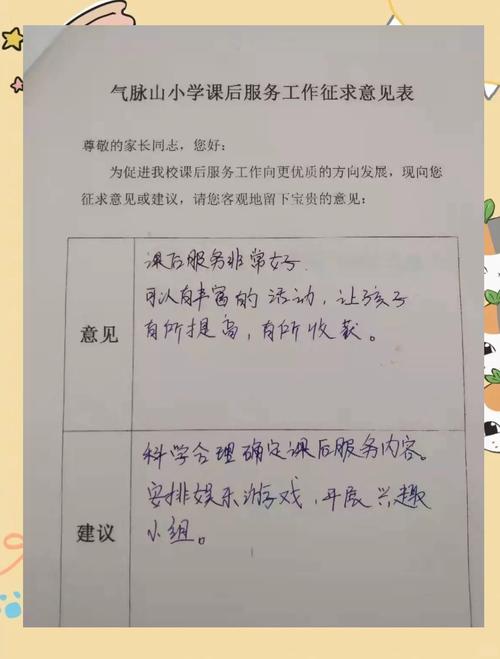 气脉山小学课后服务工作征求意见表
尊敬的家长同志，您好：
为促进我校课后服务工作向更优质的方向发展，现向您
征求意见或建议，请您客观地留下宝贵的意见：
意见
课后服务非常好.
可以有丰富的活动，让孩子
有所提高，有所收获。
建议
科学合理确定课后服务内容。
安排娱乐游戏，开展兴趣
小组。